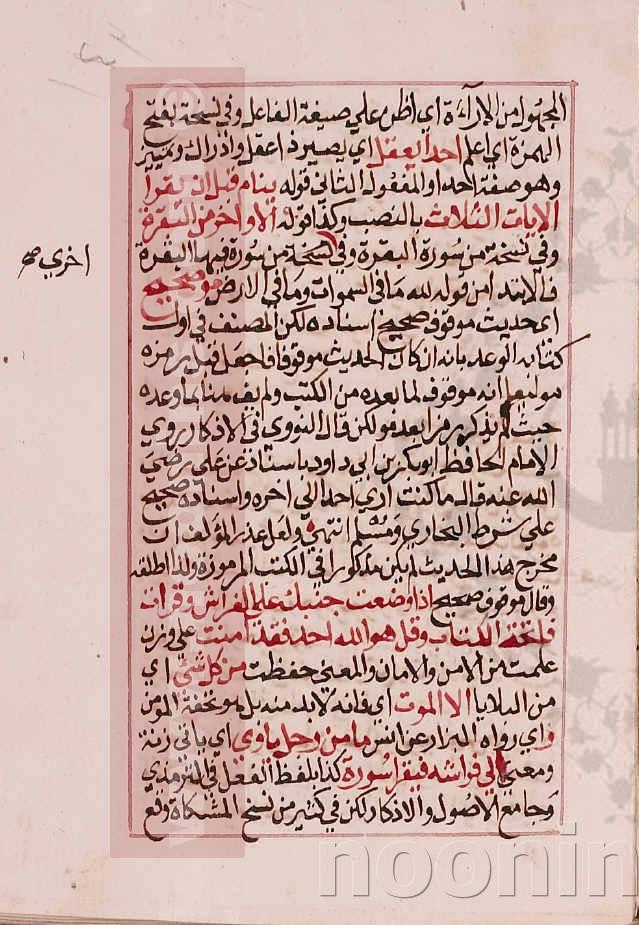 المجهول من الاراءة اي اظن علي صيغة الفاعل وفي نسخة بفتح
الهمزة اي اعلم احدا يعقل اي يصير ذا عقل وادراك وتمييز
وهو صفة احد او المفعول الثاني قوله ينام قبل ان يقرا
الايات الثلاث بالنصب وكذا قوله الاواخر من البقرة
وفي نسخة من سورة البقرة وفي نسخة من سورة فيها البقرة
اخري صح
فالابتدا من قوله لله ما في السموات وما في الارض مو صحيح
اي حديث موقوف صحيح اسناده لكن المصنف في اول
كتابه الوعد بانه ان كان الحديث موقوفا فاجعل قبل رمزه
مو ليعلم انه موقوف لما بعده من الكتب ولم يف هنا بما وعده
حيث لم يذكر رمزا بعد مو لكن قال النووي في الاذكار روي
الامام الحافظ ابو بكر بن ابي داود باسناده عن علي رضي
الله عنه قال ما كنت اري احدا الي اخره واسناده صحيح
علي شرط البخاري ومسلم انتهي ولعل عذر المؤلف ان
مخرج هذا الحديث لم يكن مذكورا في الكتب المرموزة ولذا اطلقه
وقال موقوف صحيح اذا وضعت جنبك علي الفراش وقرات
فاتحة الكتاب وقل هو الله احد فقد امنت علي وزن
علمت من الامن والامان والمعني حفظت من كل شئ اي
من البلايا الا الموت اي فانه لابد منه بل هو تحفة المومن
ر اي رواه البزار عن انس ما من رجل ياوي اي ياتي زنة
ومعني الي فراشه فيقرا سورة كذا بلفظ الفعل في الترمذي
وجامع الاصول والاذكار لكن في كثير من نسخ المشكاة وقع
noonin